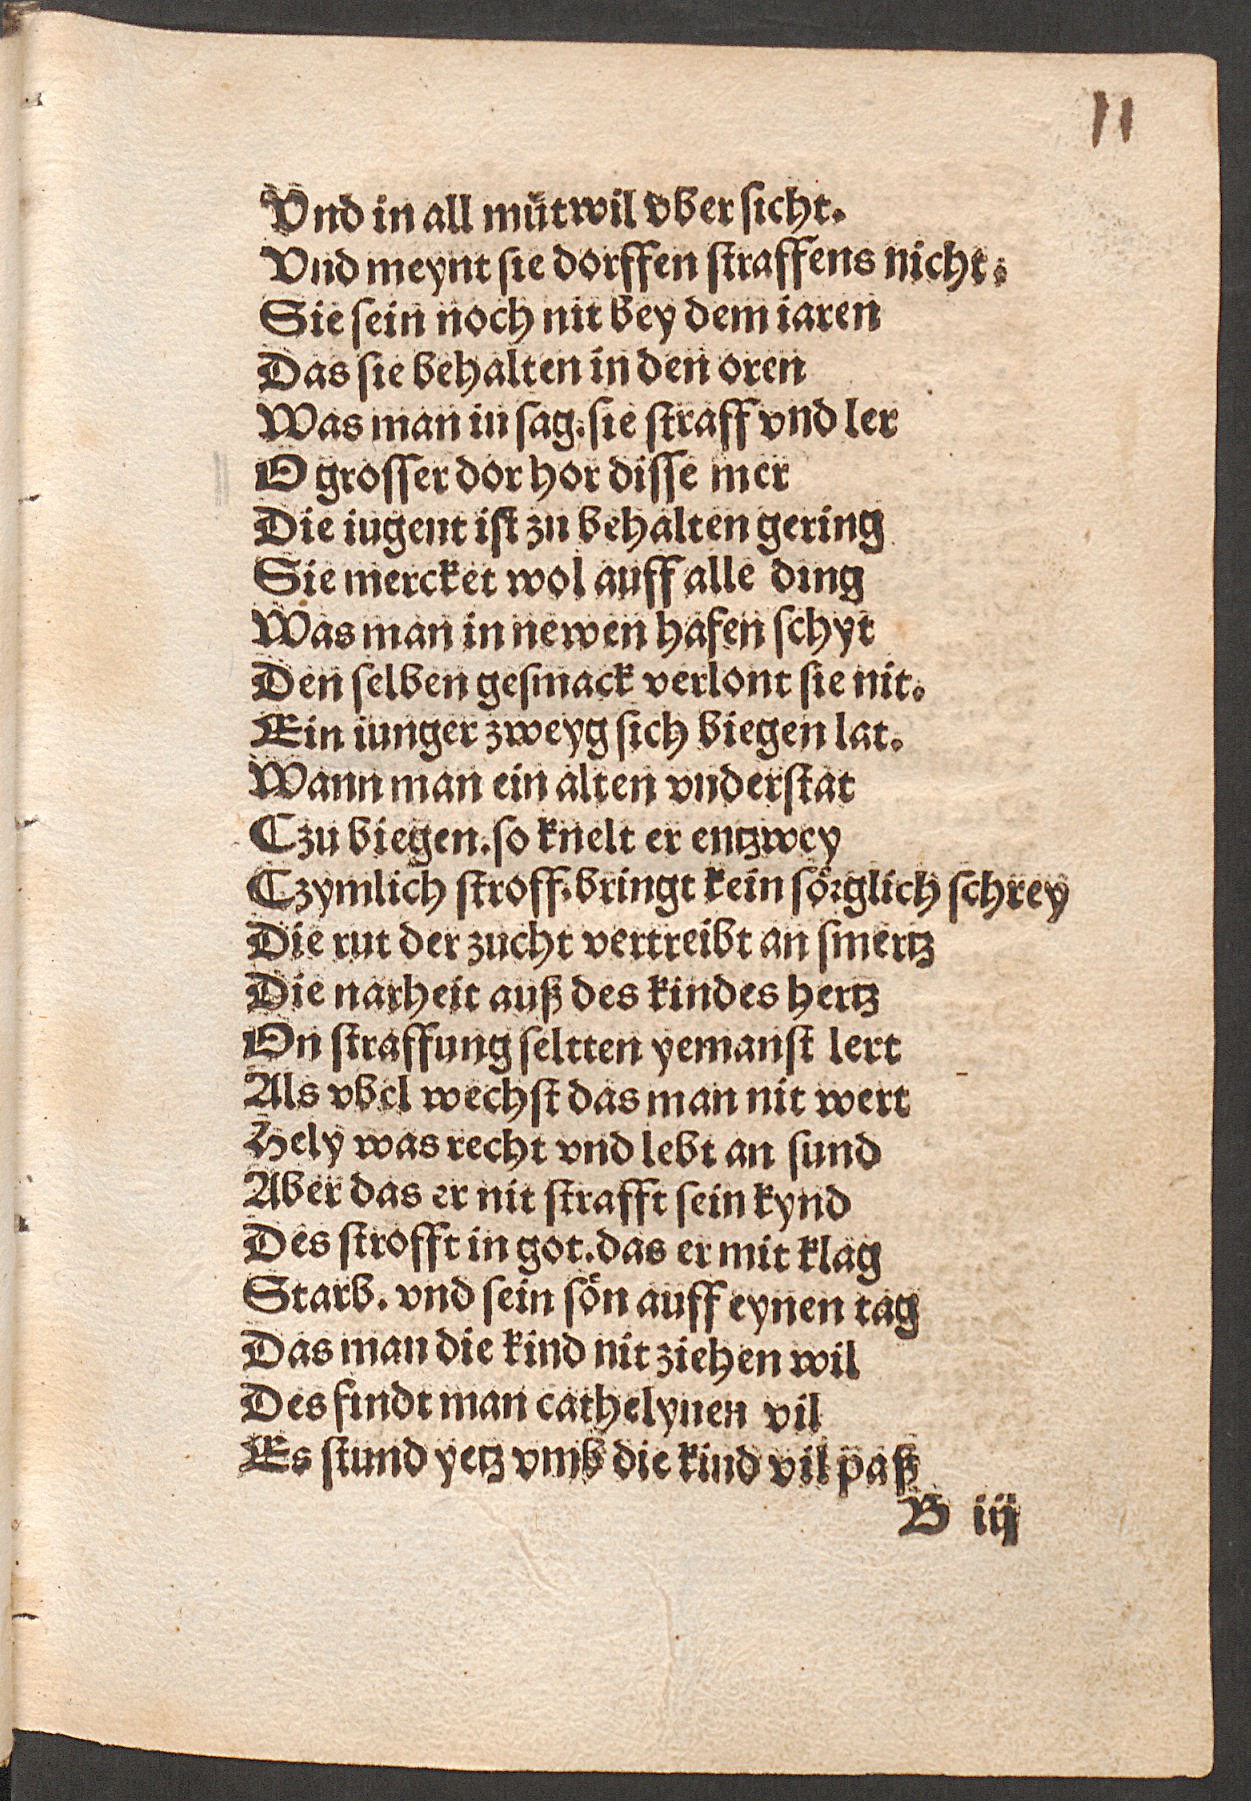 11
Vnd in all mütwil vber sicht.
Vnd meynt sie dorffen straffens nicht.
Sie sein noch nit bey dem iaren
Das sie behalten in den oren
Was man in sag. sie straff vnd ler
O grosser dor hor disse mer
Die iugent ist zu behalten gering
Sie mercket wol auff alle ding
Was man in newen hafen schyt
Den selben gesmack verlont sie nit.
Ein iunger zweyg sich biegen lat.
Wann man ein alten vnderstat
Czu biegen. so knelt er entzwey
Czymlich stroff. bringt kein sörglich schrey
Die rut der zucht vertreibt an smertz
Die narheit auß des kindes hertz
On straffung seltten yemanst lert
Als vbel wechst das man nit wert
Hely was recht vnd lebt an sund
Aber das er nit strafft sein kynd
Des strofft in got. das er mit klag
Starb. vnd sein sön auff eynen tag
Das man die kind nit ziehen wil
Des findt man cathelynen vil
Es stund yetz vmb die kind vil paß
B iij